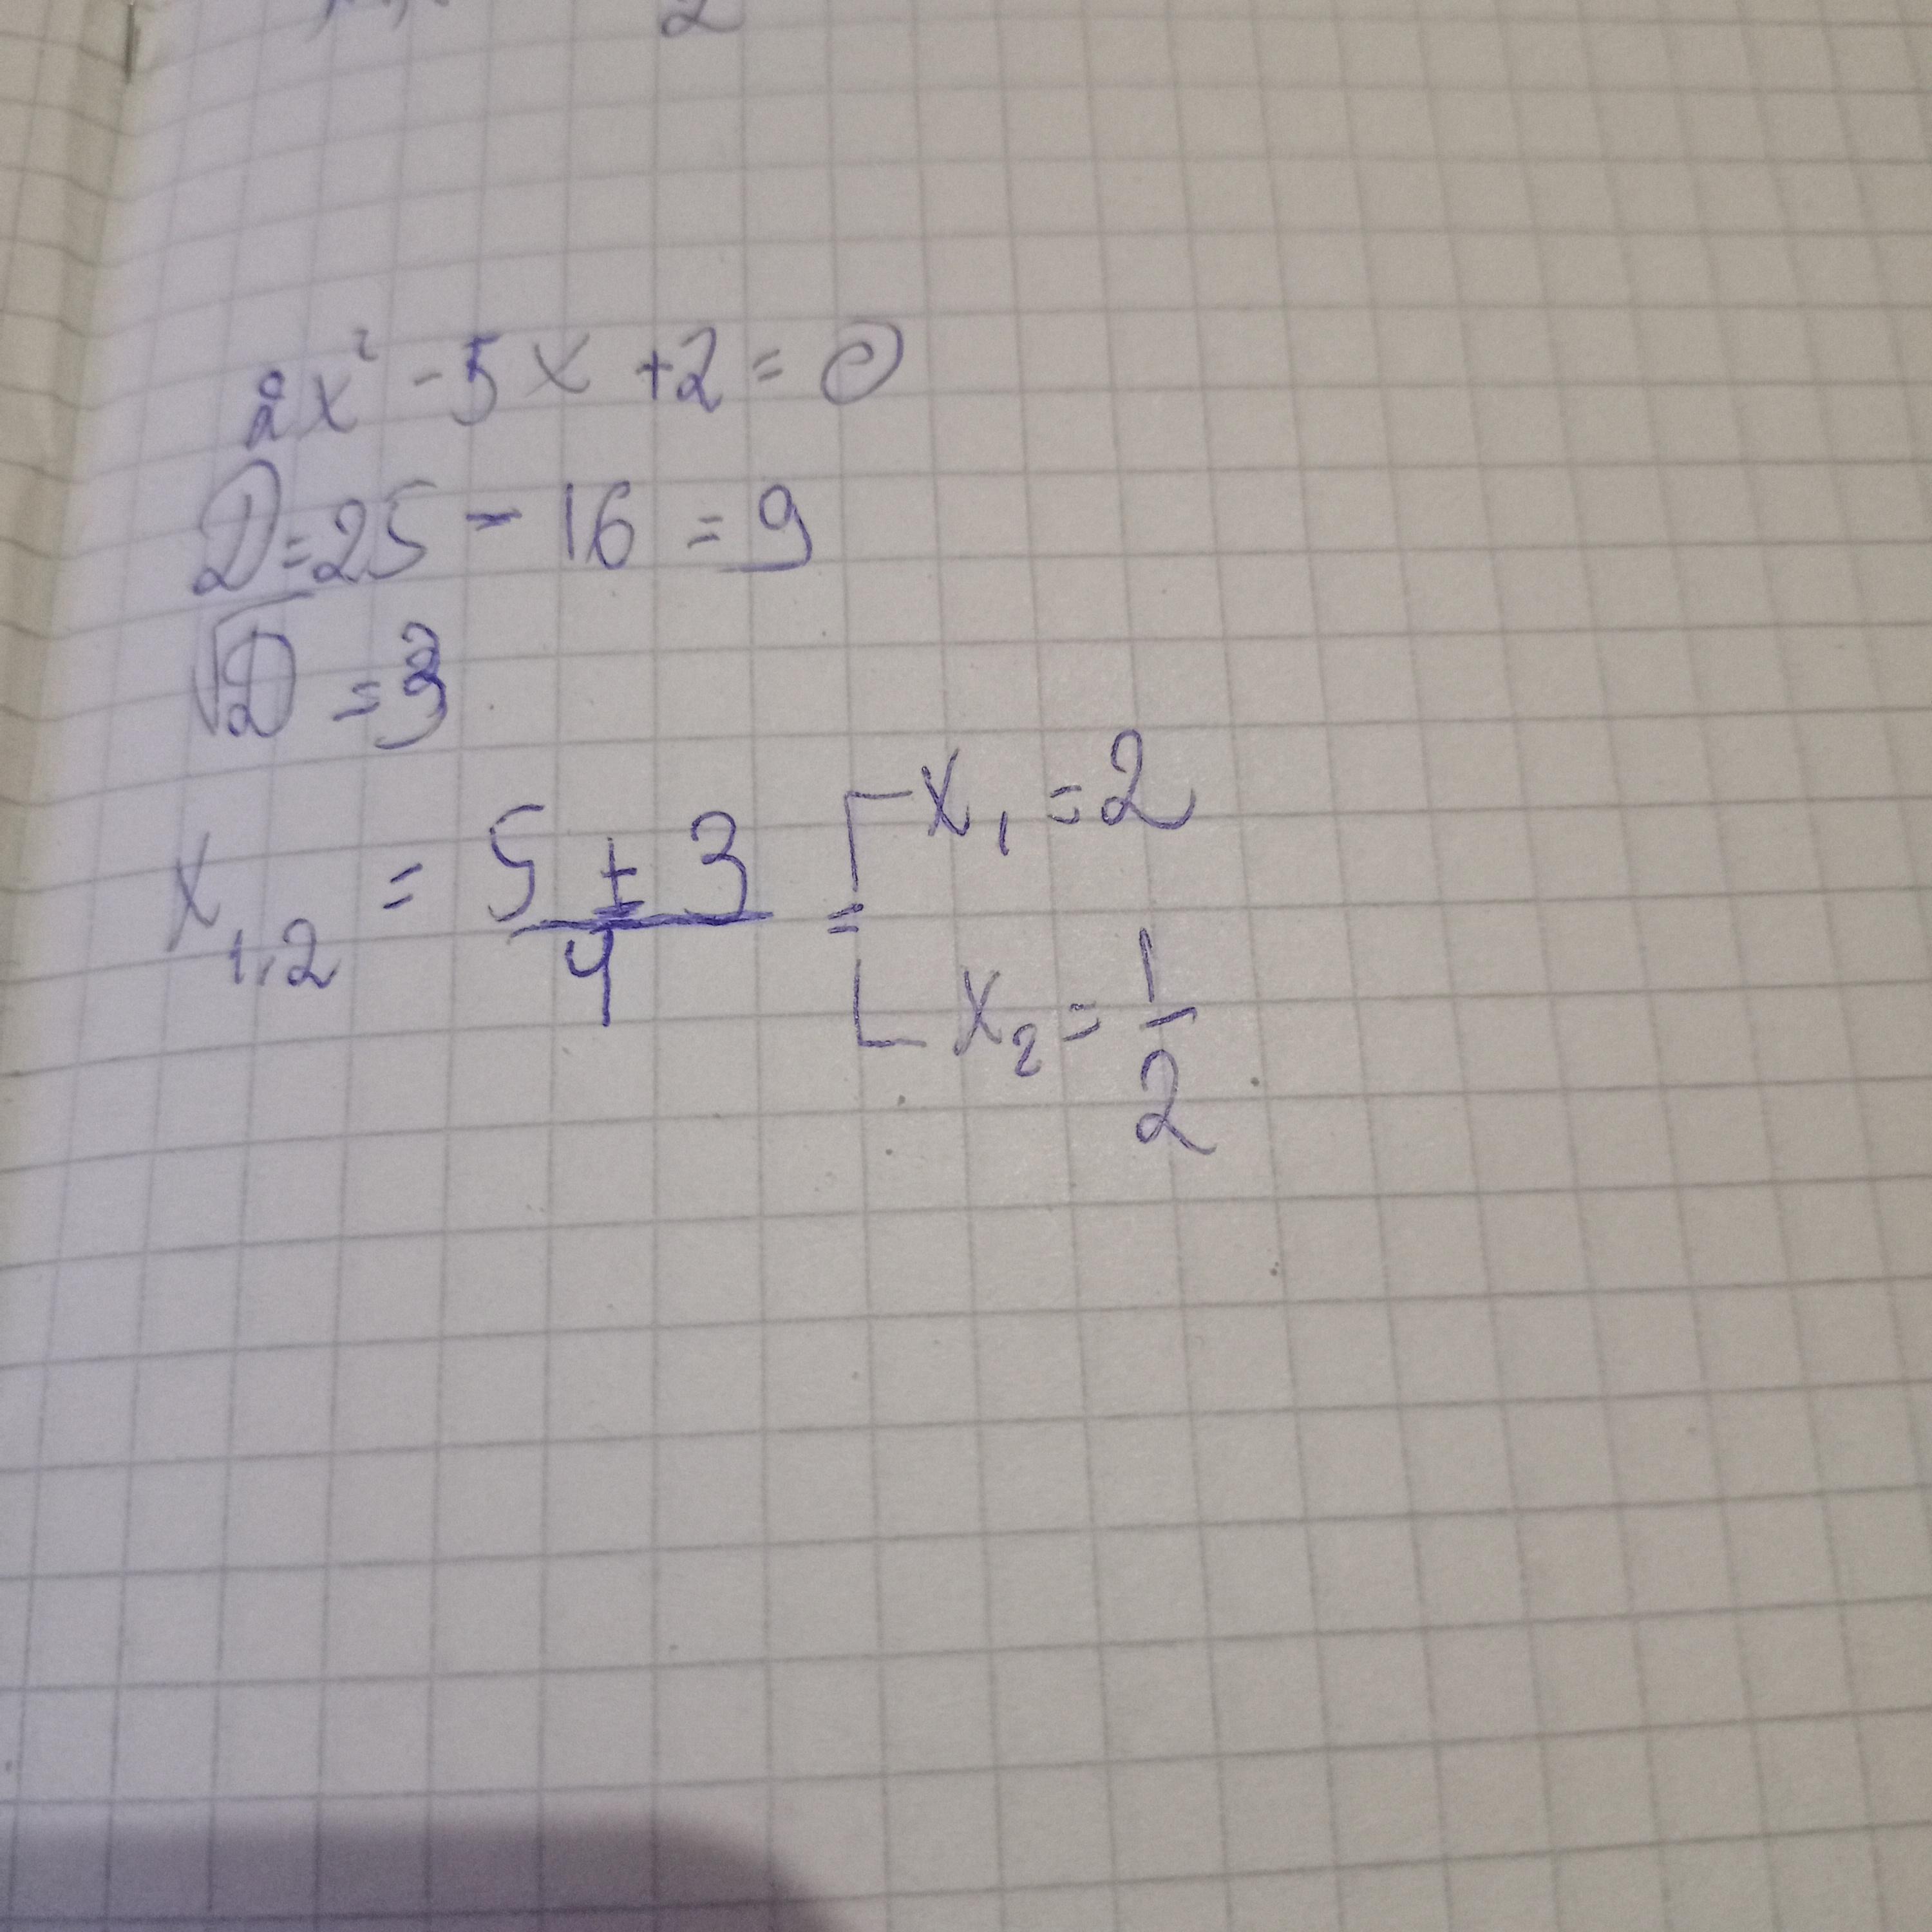 2
2x² - 5x + 2 = 0
D = 25 - 16 = 9
√D = 3
x₁,₂ = (5 ± 3)/4 = [ x₁ = 2
x₂ = 1/2